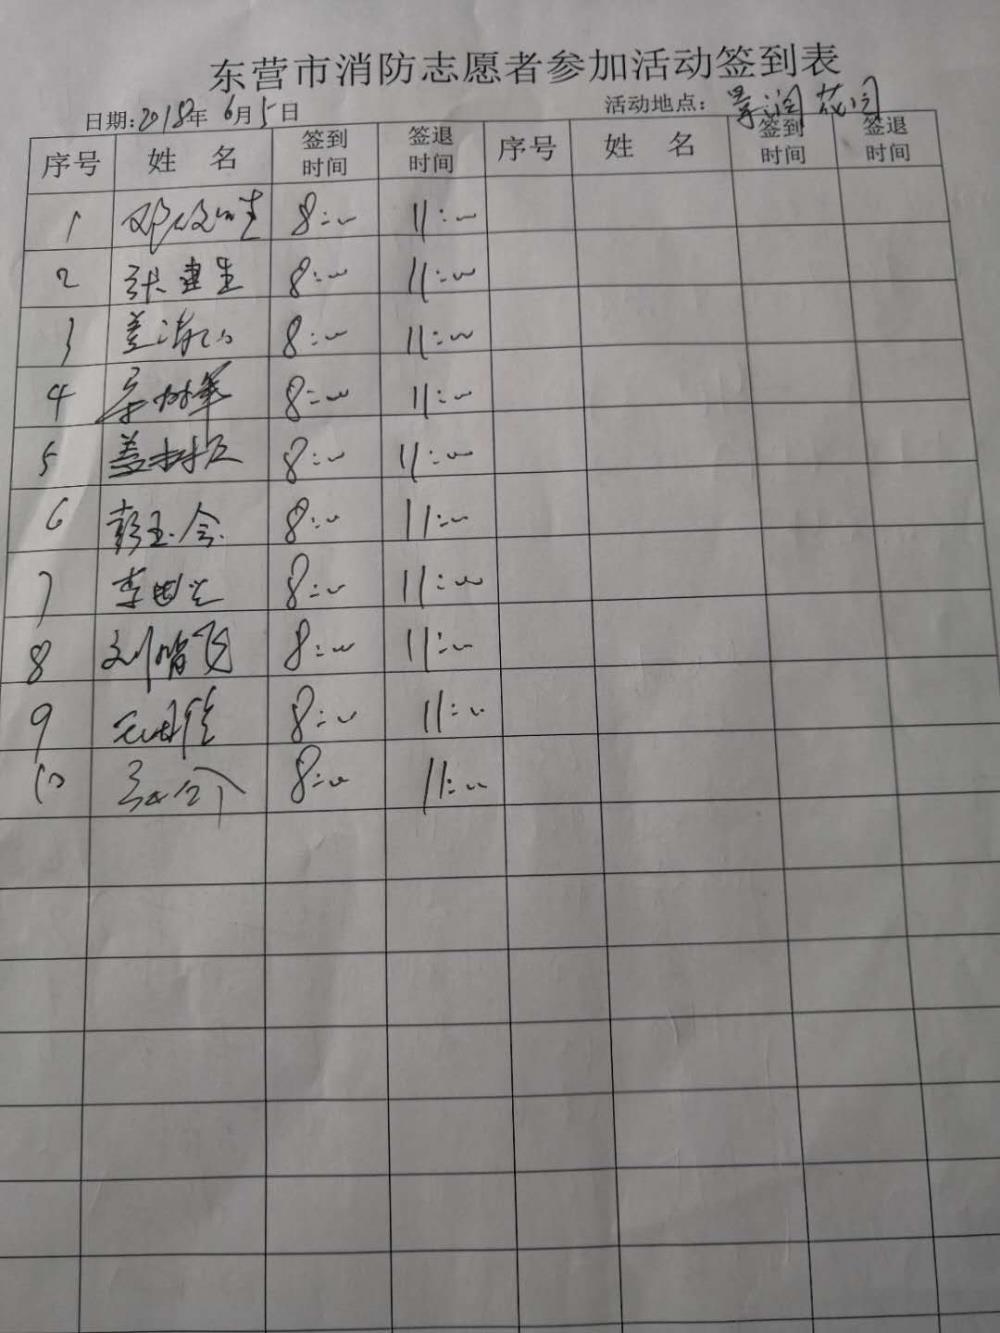 东营市消防志愿者参加活动签到表
日期:2018年6月5日 活动地点: 花园
序号 姓名 签到时间 签退时间 序号 姓名 签到时间 签退时间
1 8:00 11:00
2 张建生 8:00 11:00
3 8:00 11:00
4 8:00 11:00
5 8:00 11:00
6 彭玉会 8:00 11:00
7 李 8:00 11:00
8 刘鹏飞 8:00 11:00
9 8:00 11:00
10 8:00 11:00